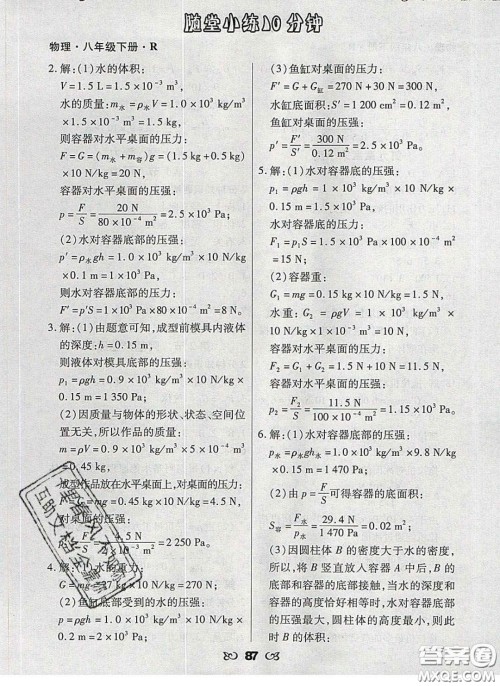 随堂小练10分钟
物理·八年级下册·R
2. 解：(1)水的体积：
V=1.5 L=1.5×10⁻³ m³，
水的质量：m水=ρ水V=1.0×10³ kg/m³
×1.5×10⁻³ m³=1.5 kg，
则容器对水平桌面的压力：
F=G=(m水+m容)g=(1.5 kg+0.5 kg)
×10 N/kg=20 N，
容器对水平桌面的压强：
p=F/S=20 N/(80×10⁻⁴ m²)=2.5×10³ Pa；
(2)水对容器底部的压强：
p'=ρ水gh=1.0×10³ kg/m³×10 N/kg
×0.1 m=1×10³ Pa，
则水对容器底部的压力：
F'=p'S=1×10³ Pa×80×10⁻⁴ m²=8 N。
3. 解：(1)由题意可知，成型前模具内液体
的深度：h=0.15 m，
则液体对模具底部的压强：
p₁=ρgh=0.9×10³ kg/m³×10 N/kg×
0.15 m=1 350 Pa；
(2)因质量与物体的形状、状态、空间位
置无关，所以作品的质量：
m=ρV=0.9×10³ kg/m³×5×10⁻⁴ m³
=0.45 kg，
成型作品放在水平桌面上，对桌面的压力：
F=G=mg=0.45 kg×10 N/kg=4.5 N，
对桌面的压强：
=2 250 Pa。
4. 解：(1)水的重力：
G=mg=27 kg×10 N/kg=270 N；
(2)鱼缸底部受到的水的压强：
p=ρgh=1.0×10³ kg/m³×10 N/kg×
0.2 m=2×10³ Pa；
(3)鱼缸对桌面的压力：
F'=G+G缸=270 N+30 N=300 N，
水缸底面积：S'=1 200 cm²=0.12 m²，
鱼缸对桌面的压强：
p'=F'/S'=300 N/0.12 m²=2.5×10³ Pa。
5. 解：(1)水对容器底的压强：
p₁=ρgh=1×10³ kg/m³×10 N/kg×
0.15 m=1.5×10³ Pa，
水对容器底的压力：
F₁=p₁S=1.5×10³ Pa×100×10⁻⁴ m²
=15 N；
(2)容器重：
G₁=mg=0.15 kg×10 N/kg=1.5 N，
水重：G₂=ρgV=1×10³ kg/m³×
10 N/kg×1×10⁻³ m³=10 N，
容器对水平桌面的压力：
F₂=G₁+G₂=1.5 N+10 N=11.5 N，
容器对水平桌面的压强：
p₂=F₂/S=11.5 N/(100×10⁻⁴ m²)=1.15×10³ Pa。
6. 解：(1)水对容器底部的压强：
p水=ρ水gh=1.0×10³ kg/m³×9.8 N/kg
×0.15 m=1 470 Pa；
(2)由p=F/S可得容器的底面积：
S容=F水/p水=29.4 N/1 470 Pa=0.02 m²；
(3)因圆柱体B的密度大于水的密度，
所以，将B竖直放入容器A中，B的
底部和容器的底部接触，当水的深度和
容器的高度恰好相等时，水对容器底部
的压强最大，圆柱体的高度最小，则此
时B的体积：
87
答案圈
MXQE.COM